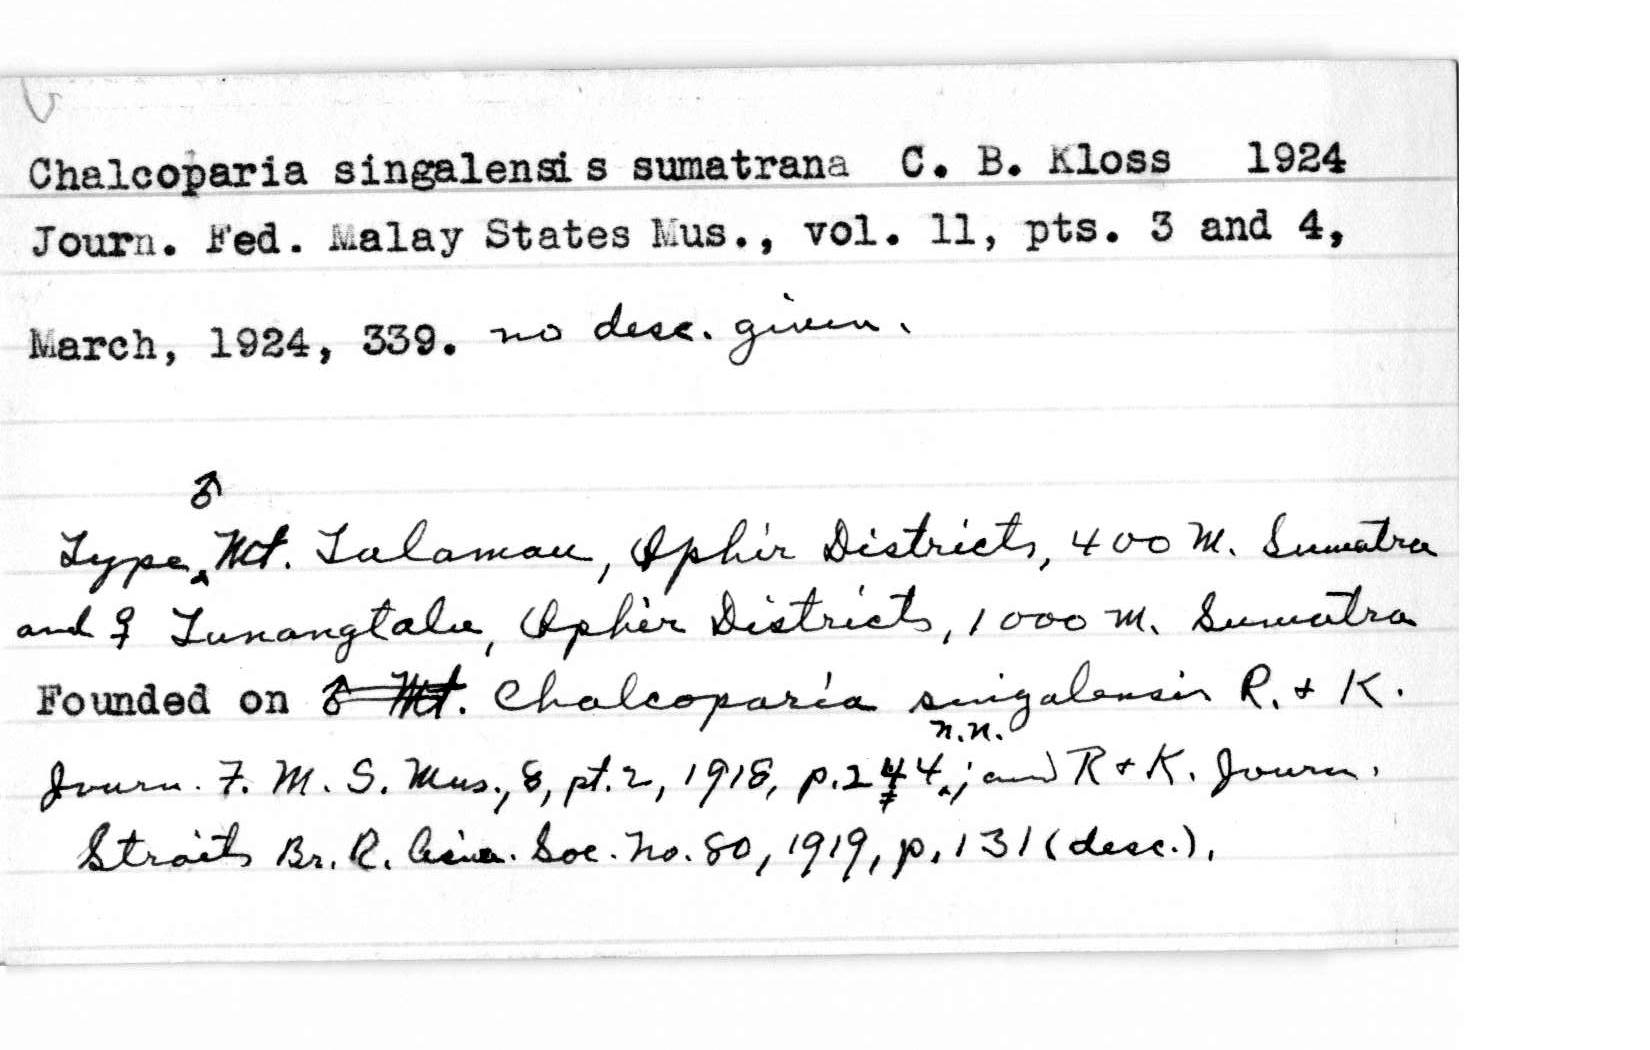 Chalcoparia singalensis sumatrana C. B. Kloss 1924
Journ. Fed. Malay States Mus., vol. 11, pts. 3 and 4,
March, 1924, 339. no desc. given.
♂
Type ‸ Mt. Talamau, Ophir Districts, 400 m. Sumatra
and ♀ Tunangtalu, Ophir Districts, 1000 m. Sumatra
Founded on ♂ Mt. Chalcoparia singalensis R. & K.
n.n.
Journ. F. M. S. Mus., 8, pt. 2, 1918, p. 244.; and R & K. Journ.
Straits Br. R. Asia. Soc. No. 80, 1919, p. 131 (desc.).